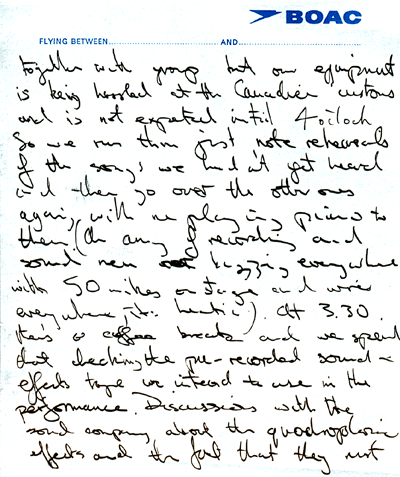 BOAC
FLYING BETWEEN AND
together with group but our equipment
is being hassled at the Canadian customs
and is not expected intil 4 o'clock
So we run thru just note rehearsals
of the songs we hadn't yet heard
and then go over the other ones
again, with me playing piano to
them. (An army of recording and
sound men buzzing everywhere
with 50 mikes on stage and wires
everywhere, it's hectic). At 3.30.
there's a coffee break and we spend
that checking the pre-recorded sound-
effects tape we intend to use in the
performance. Discussions with the
sound company about the quadrophonic
effects and the fact that they must